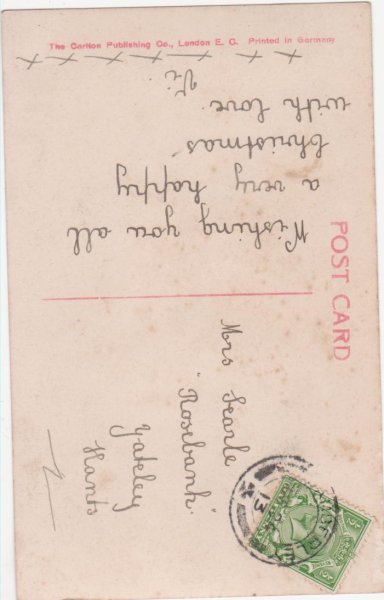 The Carlton Publishing Co., London E. C. Printed in Germany
POST CARD
Wishing you all
a very happy
Christmas
with love
Vi
x x x x x x x
Mrs Searle
"Rosebank"
Yateley
Hants
13